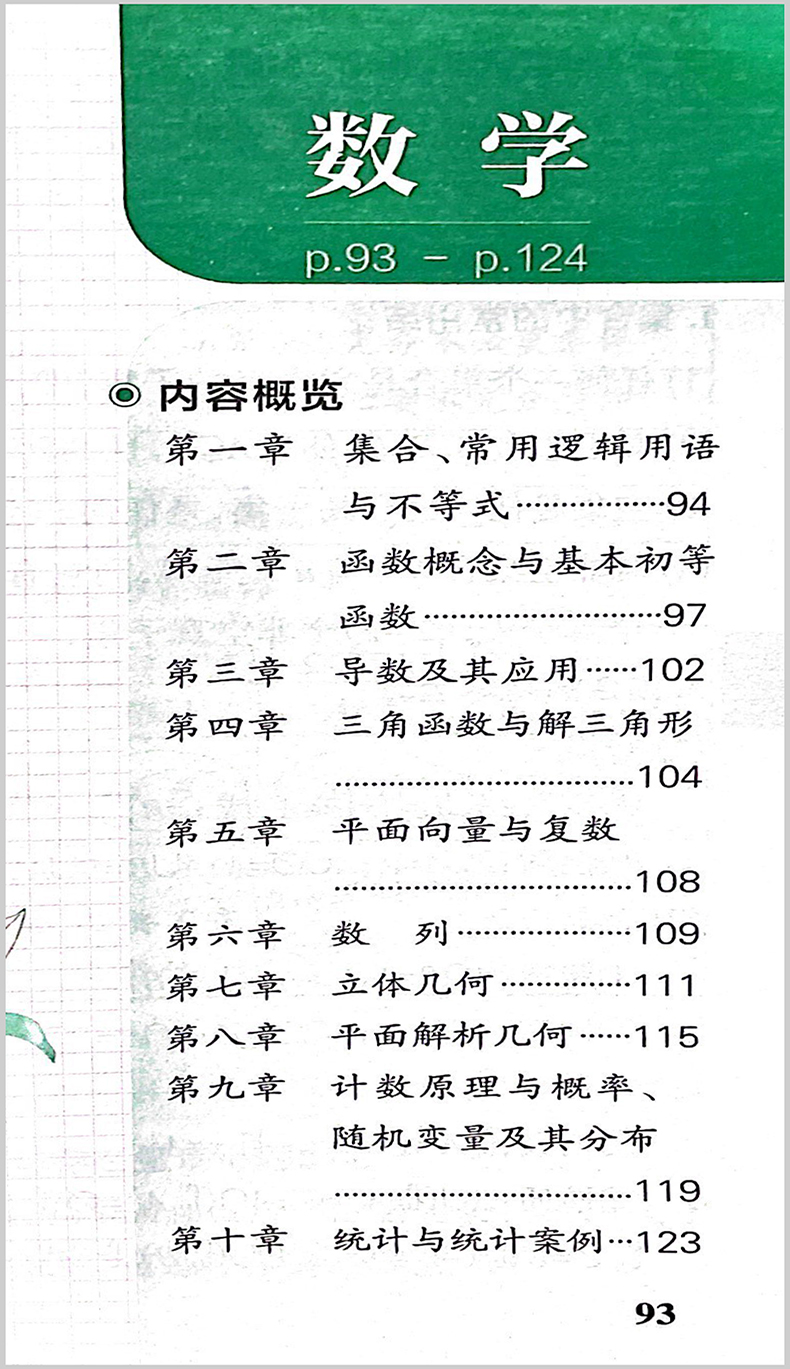 数 学
p.93 - p.124
内容概览
第一章 集合、常用逻辑用语
与不等式·················94
第二章 函数概念与基本初等
函数···························97
第三章 导数及其应用······102
第四章 三角函数与解三角形
··································104
第五章 平面向量与复数
··································108
第六章 数 列····················109
第七章 立体几何···············111
第八章 平面解析几何······115
第九章 计数原理与概率、
随机变量及其分布
··································119
第十章 统计与统计案例···123
93